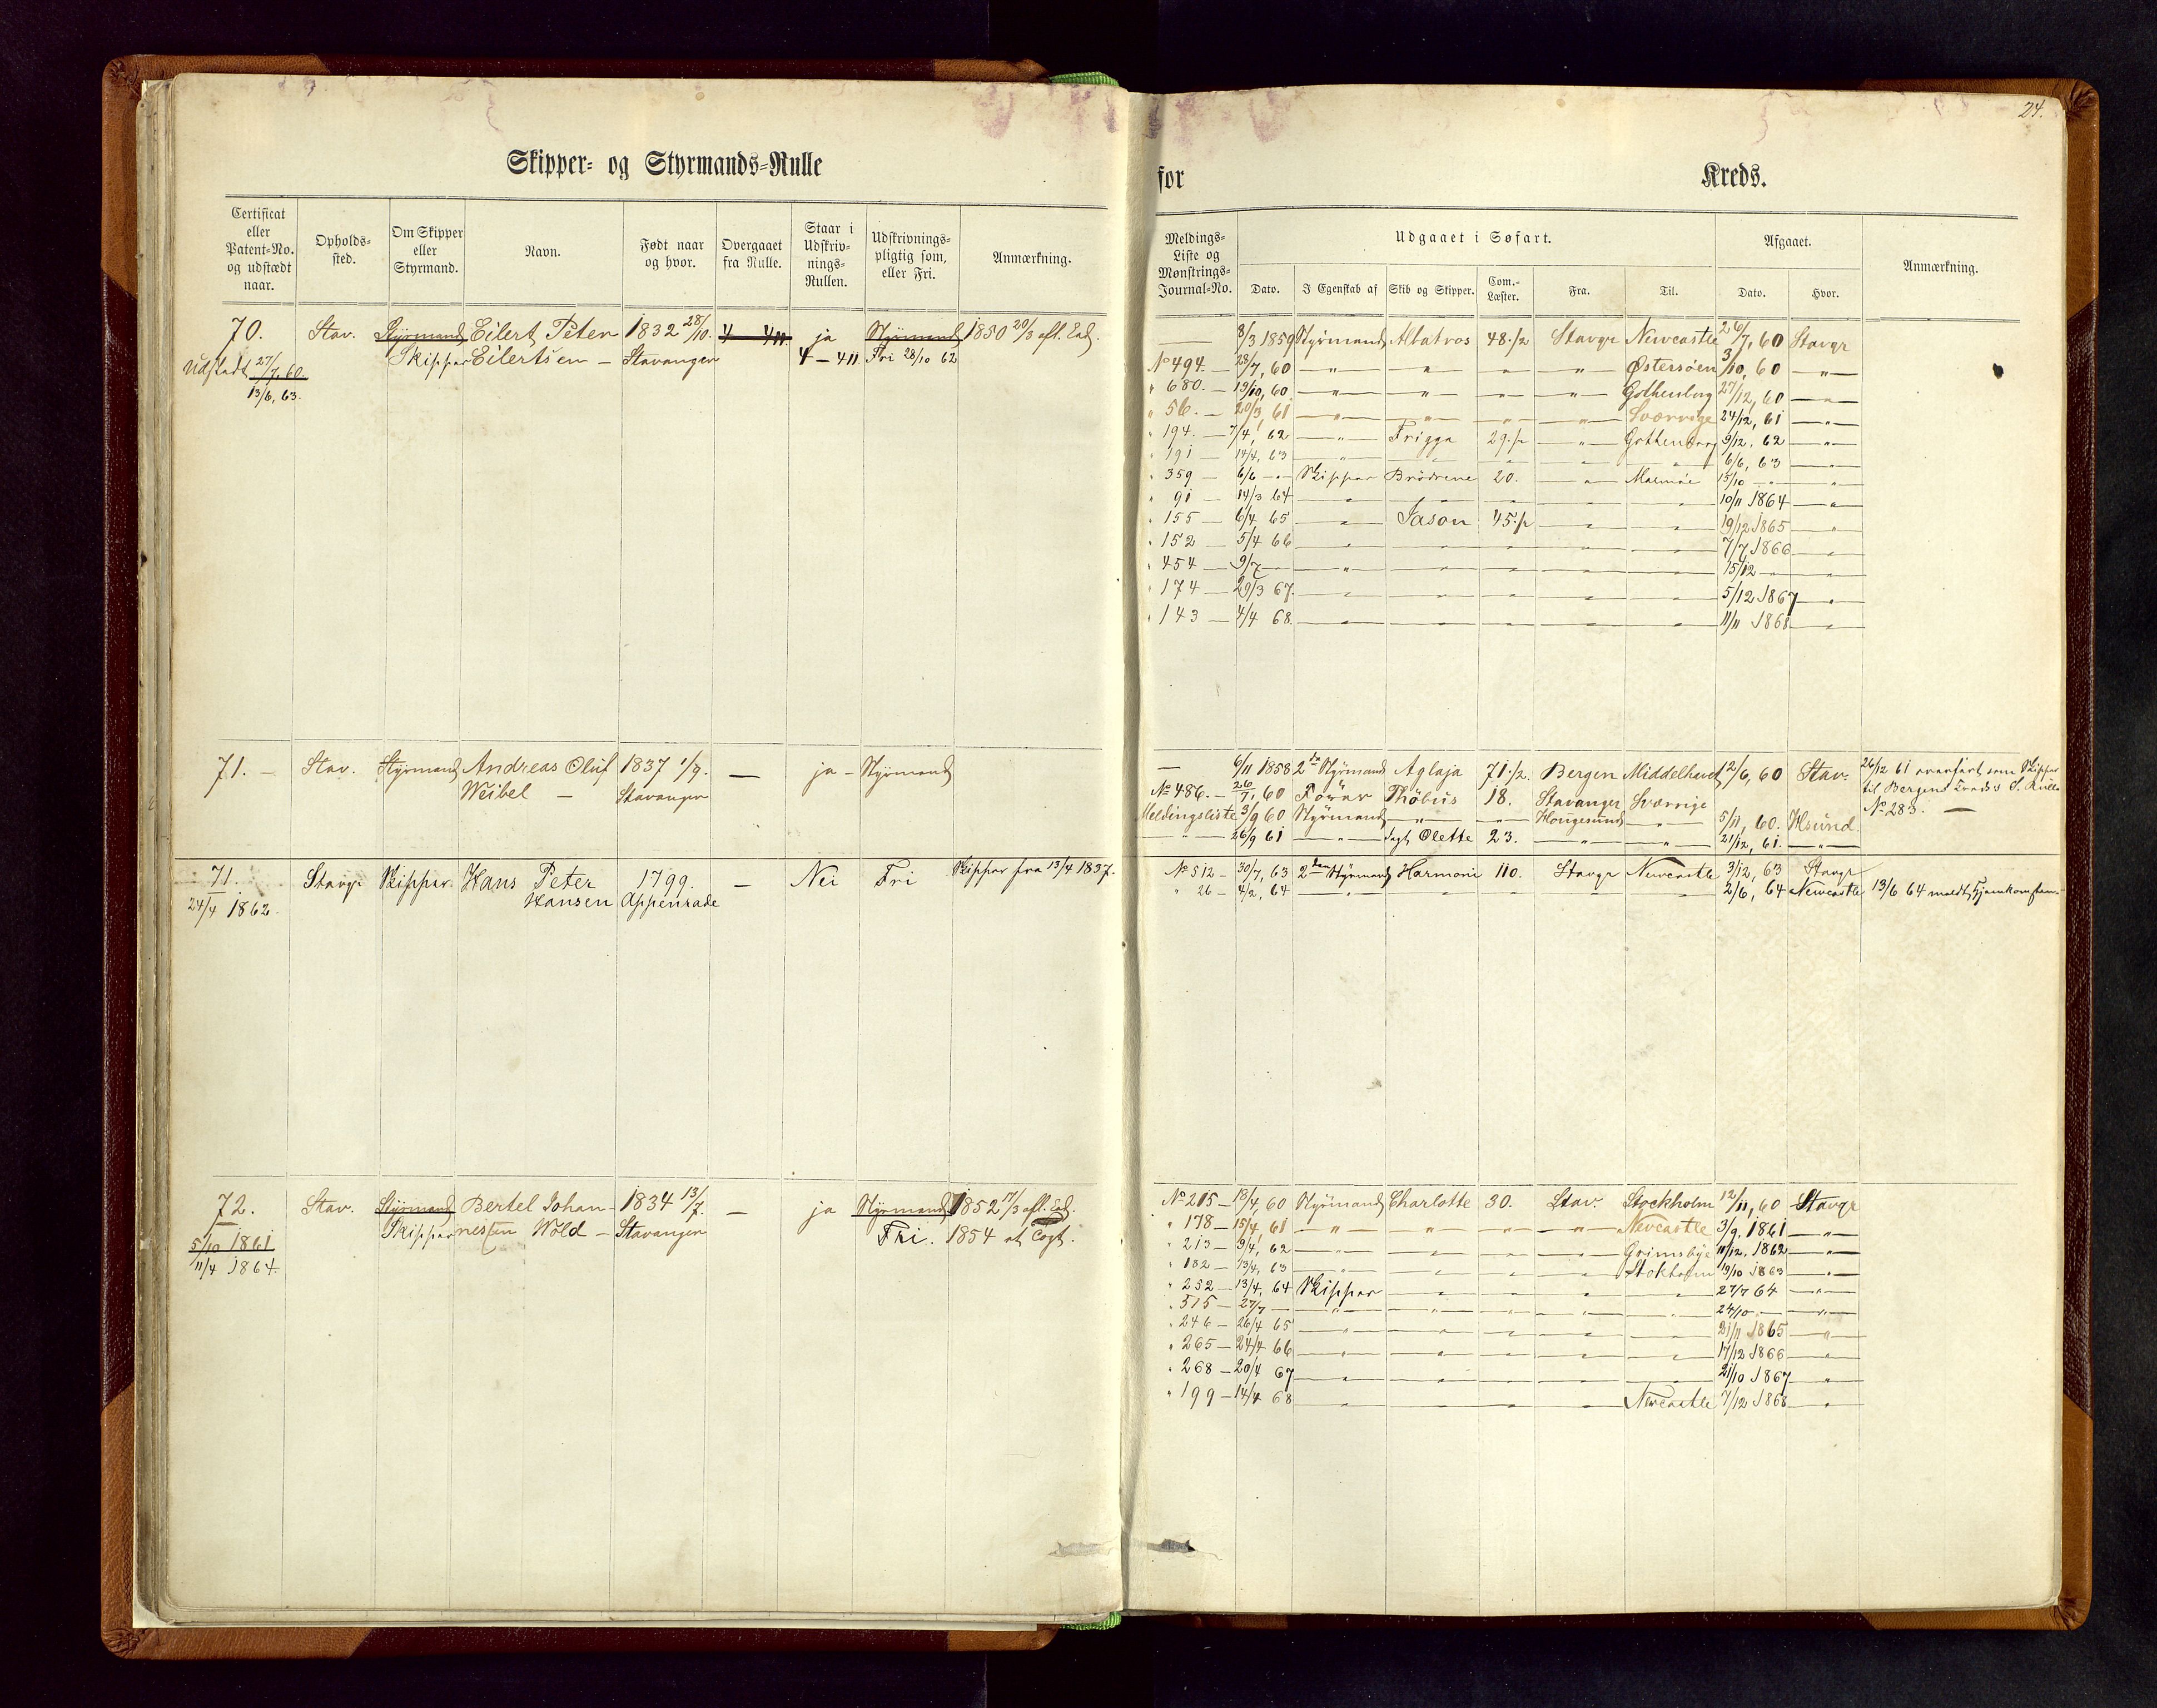 24.
Skipper- og Styrmands-Rulle
for Kreds.
Certificat eller Patent-No. og udstædt naar.
Opholds-sted.
Om Skipper eller Styrmand.
Navn.
Født naar og hvor.
Overgaaet fra Rulle.
Staar i Udskriv-nings-Rullen.
Udskrivnings-pligtig som, eller Fri.
Anmærkning.
Meldings-Liste og Mønstrings-Journal-No.
Udgaaet i Søfart.
Dato.
I Egenskab af
Skib og Skipper.
Com.-Læster.
Fra.
Til.
Afgaaet.
Dato.
Hvor.
Anmærkning.
70. Stav. Styrmand Eilert Peter 1832 28/10. 4 411 ja Styrmand 1850 20/3 afl. Ed.
Udstedt 27/7, 60. Skipper Eilertsen – Stavanger 4 – 411 Fri 28/10 62
13/6, 63.
— 8/3 1859 Styrmand Albatros 48 1/2 Stavgr Newcastle 26/7, 60 Stavgr
No 494. — 28/7, 60 — " — " — " — " Østersøen 3/10, 60 — " —
" 680. — 19/10, 60 — " — " — " — " Gothenborg 27/12, 60 — " —
" 56. — 20/3, 61 — " — " — " — " Sverrige 24/12, 61 — " —
" 194. — 7/4, 62 — " — Frigga 29 1/2 — " Gothenborg 9/12, 62 — " —
" 191 — 14/4, 63 — " — " — " — " — " 6/6, 63 — " —
" 359 — 6/6 — " — Skipper Brødrene 20. — " Malmøe 15/10 — " — " —
" 91 — 14/3 64 — " — " — " — " — " 10/11 1864 — " —
" 155 — 6/4 65 — " — Jason 45 1/2 — " — " 19/12 1865 — " —
" 152 — 5/4 66 — " — " — " — " — " 7/7 1866 — " —
" 454 — 9/7 — " — " — " — " — " 15/12 — " — " —
" 174 — 29/3 67. — " — " — " — " — " 5/12 1867 — " —
" 143 — 4/4 68. — " — " — " — " — " 11/11 1868 — " —
71. — Stav. Styrmand Andreas Oluf 1837 1/9. — ja – Styrmand
Weibel — Stavanger
— 6/11 1858 2den Styrmand Aglaja 71 1/2. Bergen Middelhavet 12/6, 60 Stav. 26/12 61 overført som Skipper
No 486. — 26/7, 60 Fører Phöbus 18. Stavanger Sverrige til Bergens Kreds S. Rulle
Meldingsliste 3/9 60 Styrmand — " — " Hougesund — " 5/11, 60. Hsund. No 283. —
— " — 26/9 61 — " — Jagt Olette 23. — " — " 21/12, 61. — " —
71. Stavgr Skipper. Hans Peter 1799. — Nei Fri Skipper fra 13/4 1837.
24/4 1862. Hansen Appenrade
No 512 — 30/7, 63 2den Styrmand Harmoni 110. Stavgr Newcastle 3/12, 63 Stavgr
" 26 — 4/2, 64 — " — " — " — " — " 2/6, 64 Newcastle 13/6 64 meldt Hjemkomsten.
72. Stav. Styrmand Bertel Johan- 1834 13/7. — ja Styrmand 1852 17/3 afl. Ed.
5/10 1861 Skipper nessen Wold – Stavanger Fri. 1854 et Togt.
11/4 1864.
No 215 — 18/4, 60 Styrmand Charlotte 30. Stav. Stockholm 12/11, 60 Stavgr
" 178 — 15/4, 61 — " — " — " — " Newcastle 3/9, 1861 — " —
" 213 — 9/4, 62 — " — " — " — " Grimsbye 11/12, 1862 — " —
" 182 — 13/4, 63 — " — " — " — " Stokholm 19/10 1863 — " —
" 252 — 13/4, 64 Skipper — " — " — " — " 27/7 64 — " —
" 515 — 27/7 — " — " — " — " — " 24/10 — " — " —
" 246 — 26/4 65 — " — " — " — " — " 21/11 1865 — " —
" 265 — 24/4 66 — " — " — " — " — " 17/12 1866 — " —
" 268 — 20/4 67 — " — " — " — " — " 21/10 1867 — " —
" 199 — 14/4 68 — " — " — " — " Newcastle 7/12 1868 — " —